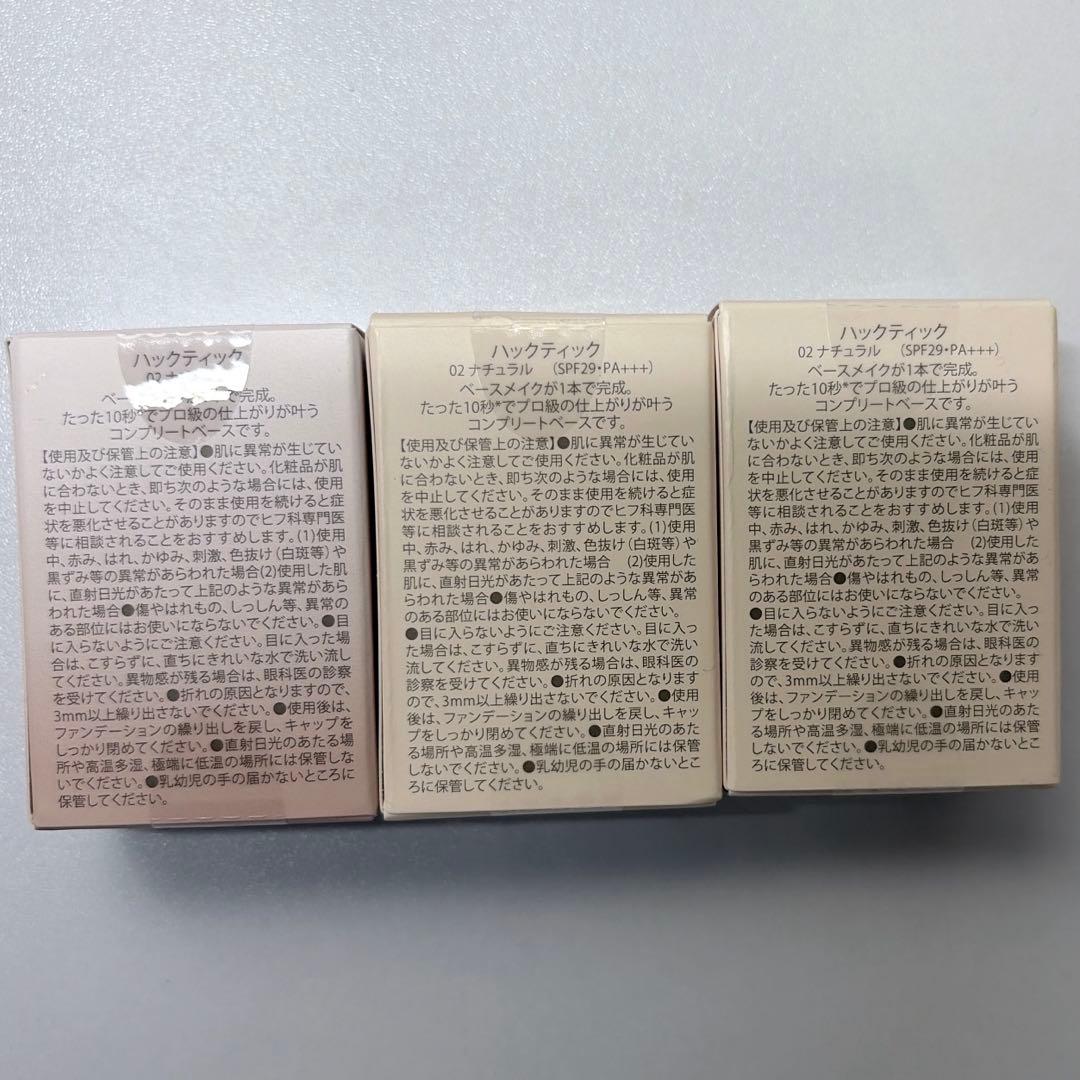 ハックティック
02 ナ
ベース で完成。
たった10秒*でプロ級の仕上がりが叶う
コンプリートベースです。
【使用及び保管上の注意】●肌に異常が生じてい
ないかよく注意してご使用ください。化粧品が肌
に合わないとき、即ち次のような場合には、使用
を中止してください。そのまま使用を続けると症
状を悪化させることがありますのでヒフ科専門医
等に相談されることをおすすめします。(1)使用
中、赤み、はれ、かゆみ、刺激、色抜け(白斑等)や
黒ずみ等の異常があらわれた場合(2)使用した肌
に、直射日光があたって上記のような異常があら
われた場合●傷やはれもの、しっしん等、異常の
ある部位にはお使いにならないでください。●目
に入らないようにご注意ください。目に入った場
合は、こすらずに、直ちにきれいな水で洗い流し
てください。異物感が残る場合は、眼科医の診察
を受けてください。●折れの原因となりますので、
3mm以上繰り出さないでください。●使用後は、
ファンデーションの繰り出しを戻し、キャップを
しっかり閉めてください。●直射日光のあたる場
所や高温多湿、極端に低温の場所には保管しな
いでください。●乳幼児の手の届かないところに
保管してください。
ハックティック
02 ナチュラル (SPF29・PA+++)
ベースメイクが1本で完成。
たった10秒*でプロ級の仕上がりが叶う
コンプリートベースです。
【使用及び保管上の注意】●肌に異常が生じてい
ないかよく注意してご使用ください。化粧品が肌
に合わないとき、即ち次のような場合には、使用
を中止してください。そのまま使用を続けると症
状を悪化させることがありますのでヒフ科専門医
等に相談されることをおすすめします。(1)使用
中、赤み、はれ、かゆみ、刺激、色抜け(白斑等)や
黒ずみ等の異常があらわれた場合 (2)使用した
肌に、直射日光があたって上記のような異常があ
らわれた場合●傷やはれもの、しっしん等、異常
のある部位にはお使いにならないでください。
●目に入らないようにご注意ください。目に入っ
た場合は、こすらずに、直ちにきれいな水で洗い
流してください。異物感が残る場合は、眼科医の
診察を受けてください。●折れの原因となります
ので、3mm以上繰り出さないでください。●使用
後は、ファンデーションの繰り出しを戻し、キャッ
プをしっかり閉めてください。●直射日光のあた
る場所や高温多湿、極端に低温の場所には保管
しないでください。●乳幼児の手の届かないとこ
ろに保管してください。
ハックティック
02 ナチュラル (SPF29・PA+++)
ベースメイクが1本で完成。
たった10秒*でプロ級の仕上がりが叶う
コンプリートベースです。
【使用及び保管上の注意】●肌に異常が生じてい
ないかよく注意してご使用ください。化粧品が肌
に合わないとき、即ち次のような場合には、使用
を中止してください。そのまま使用を続けると症
状を悪化させることがありますのでヒフ科専門医
等に相談されることをおすすめします。(1)使用
中、赤み、はれ、かゆみ、刺激、色抜け(白斑等)や
黒ずみ等の異常があらわれた場合 (2)使用した
肌に、直射日光があたって上記のような異常があ
らわれた場合●傷やはれもの、しっしん等、異常
のある部位にはお使いにならないでください。
●目に入らないようにご注意ください。目に入っ
た場合は、こすらずに、直ちにきれいな水で洗い
流してください。異物感が残る場合は、眼科医の
診察を受けてください。●折れの原因となります
ので、3mm以上繰り出さないでください。●使用
後は、ファンデーションの繰り出しを戻し、キャッ
プをしっかり閉めてください。●直射日光のあた
る場所や高温多湿、極端に低温の場所には保管
しないでください。●乳幼児の手の届かないとこ
ろに保管してください。